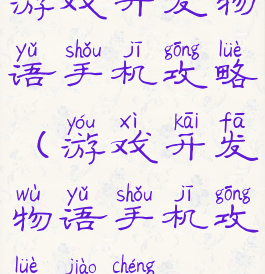 游戏开发物
yǔ shǒu jī gōng lüè
语手机攻略
yóu xì kāi fā
（游戏开发
wù yǔ shǒu jī gōng
物语手机攻
lüè jiào chéng